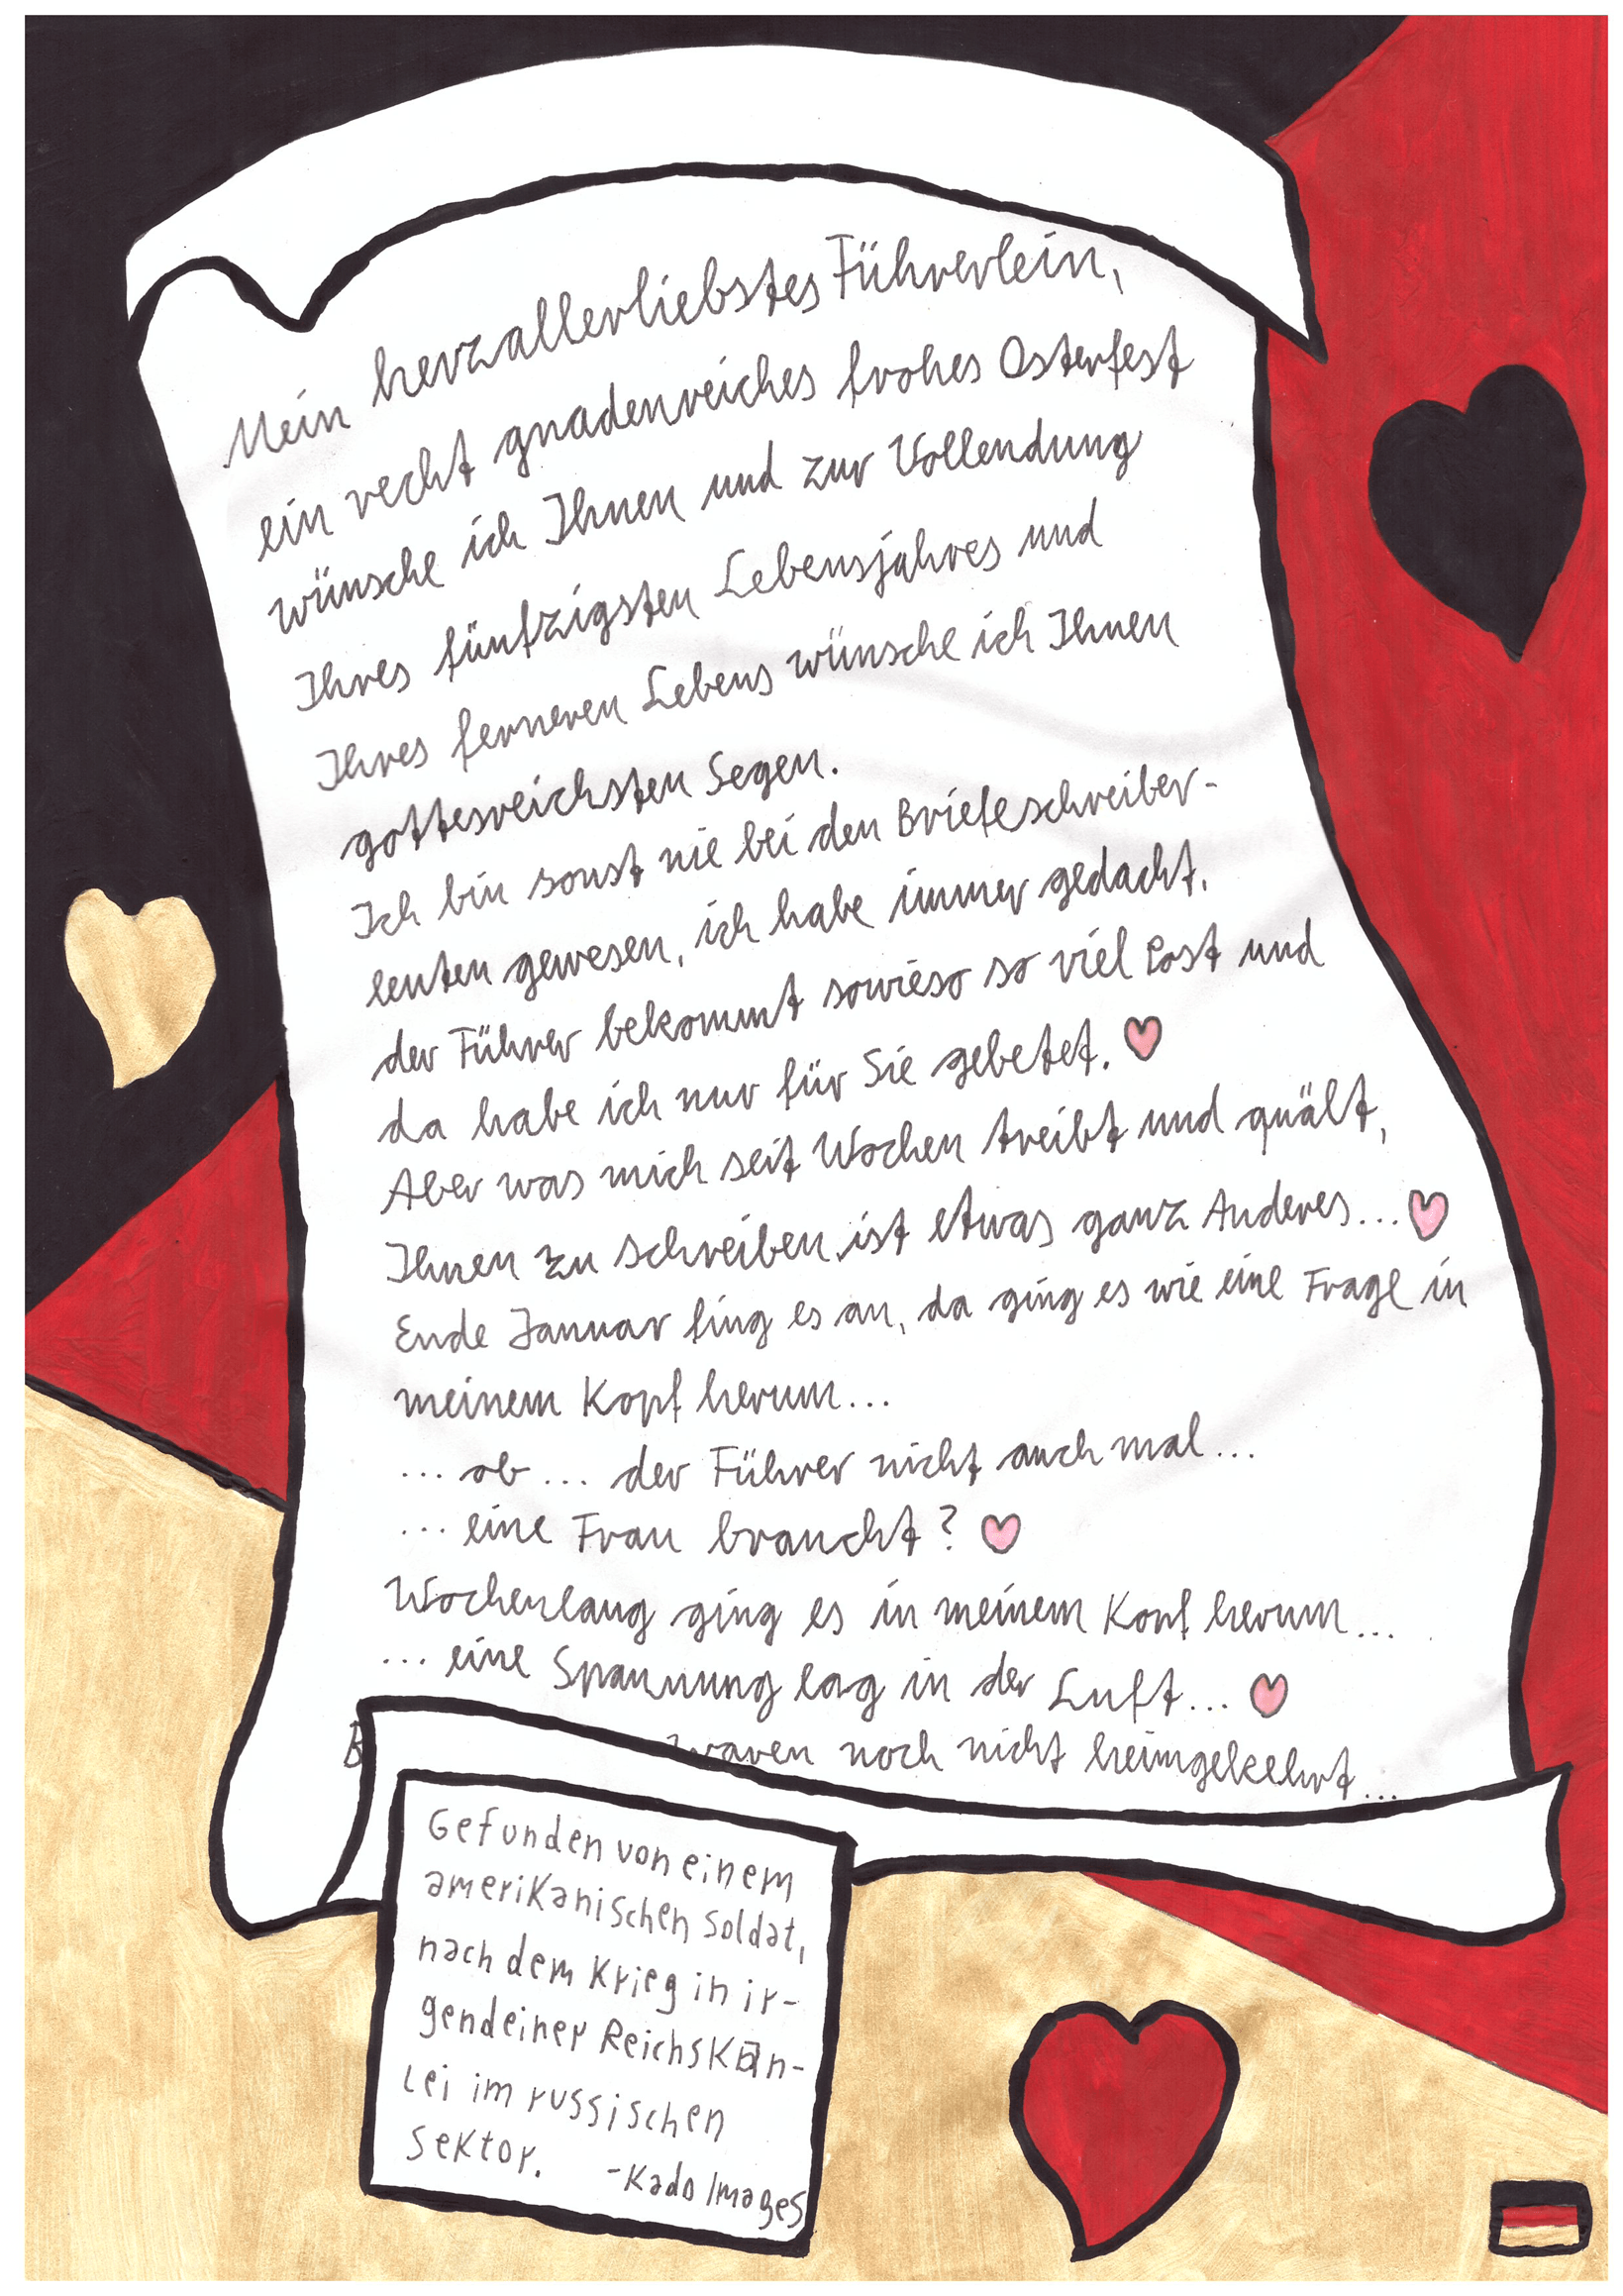 Mein herzallerliebstes Führerlein,
ein recht gnadenreiches frohes Osterfest
wünsche ich Ihnen und zur Vollendung
Ihres fünfzigsten Lebensjahres und
Ihres ferneren Lebens wünsche ich Ihnen
gottesreichsten Segen.
Ich bin sonst nie bei den Briefeschreiber-
leuten gewesen, ich habe immer gedacht,
der Führer bekommt sowieso so viel Post und
da habe ich nur für Sie gebetet.
Aber was mich seit Wochen treibt und quält,
Ihnen zu schreiben, ist etwas ganz Anderes...
Ende Januar fing es an, da ging es wie eine Frage in
meinem Kopf herum...
... ob ... der Führer nicht auch mal ...
... eine Frau braucht?
Wochenlang ging es in meinem Kopf herum...
... eine Spannung lag in der Luft...
B waren noch nicht heimgekehrt...
Gefunden von einem
amerikanischen Soldat,
nach dem Krieg in ir-
gendeiner Reichskan-
lei im russischen
Sektor.
-Kado Images